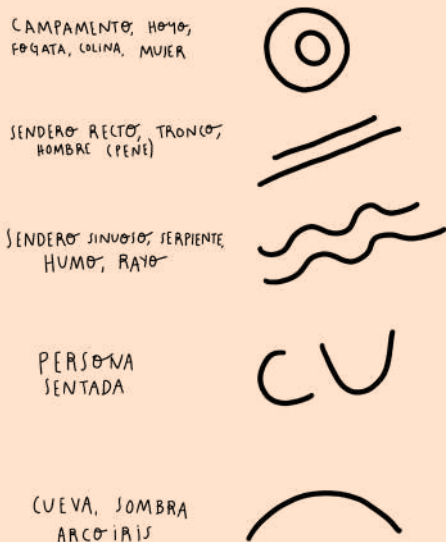 CAMPAMENTO, HOYO,
FOGATA, COLINA, MUJER
SENDERO RECTO, TRONCO,
HOMBRE (PENE)
SENDERO SINUOSO, SERPIENTE,
HUMO, RAYO
PERSONA
SENTADA
CUEVA, SOMBRA
ARCOIRIS